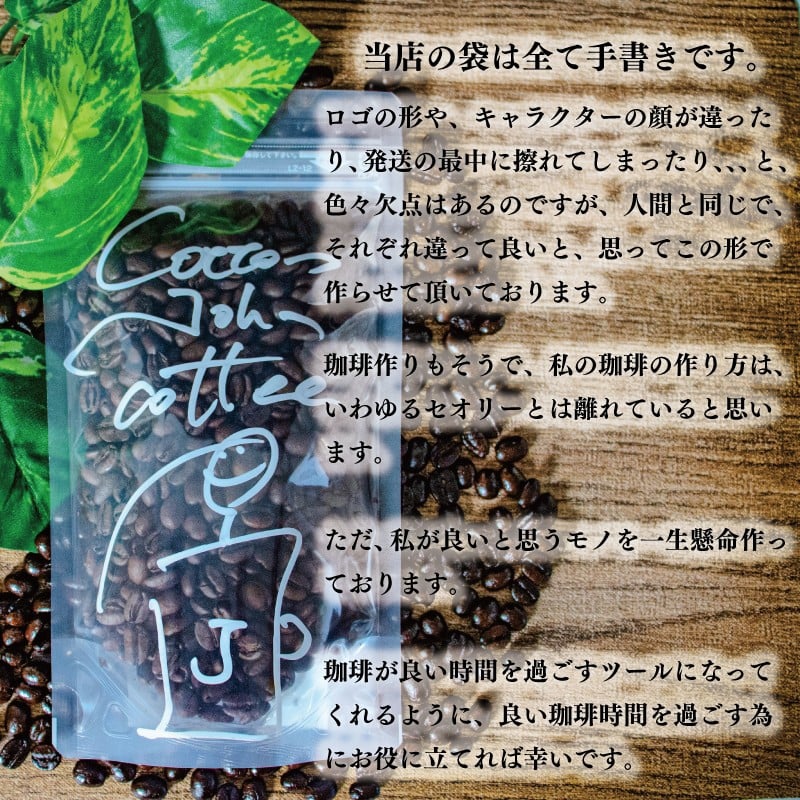 当店の袋は全て手書きです。
ロゴの形や、キャラクターの顔が違った
り、発送の最中に擦れてしまったり、、、と、
色々欠点はあるのですが、人間と同じで、
それぞれ違って良いと、思ってこの形で
作らせて頂いております。
珈琲作りもそうで、私の珈琲の作り方は、
いわゆるセオリーとは離れていると思い
ます。
ただ、私が良いと思うモノを一生懸命作っ
ております。
珈琲が良い時間を過ごすツールになって
くれるように、良い珈琲時間を過ごす為
にお役に立てれば幸いです。
LZ-12
Cocco
John
coffee
J